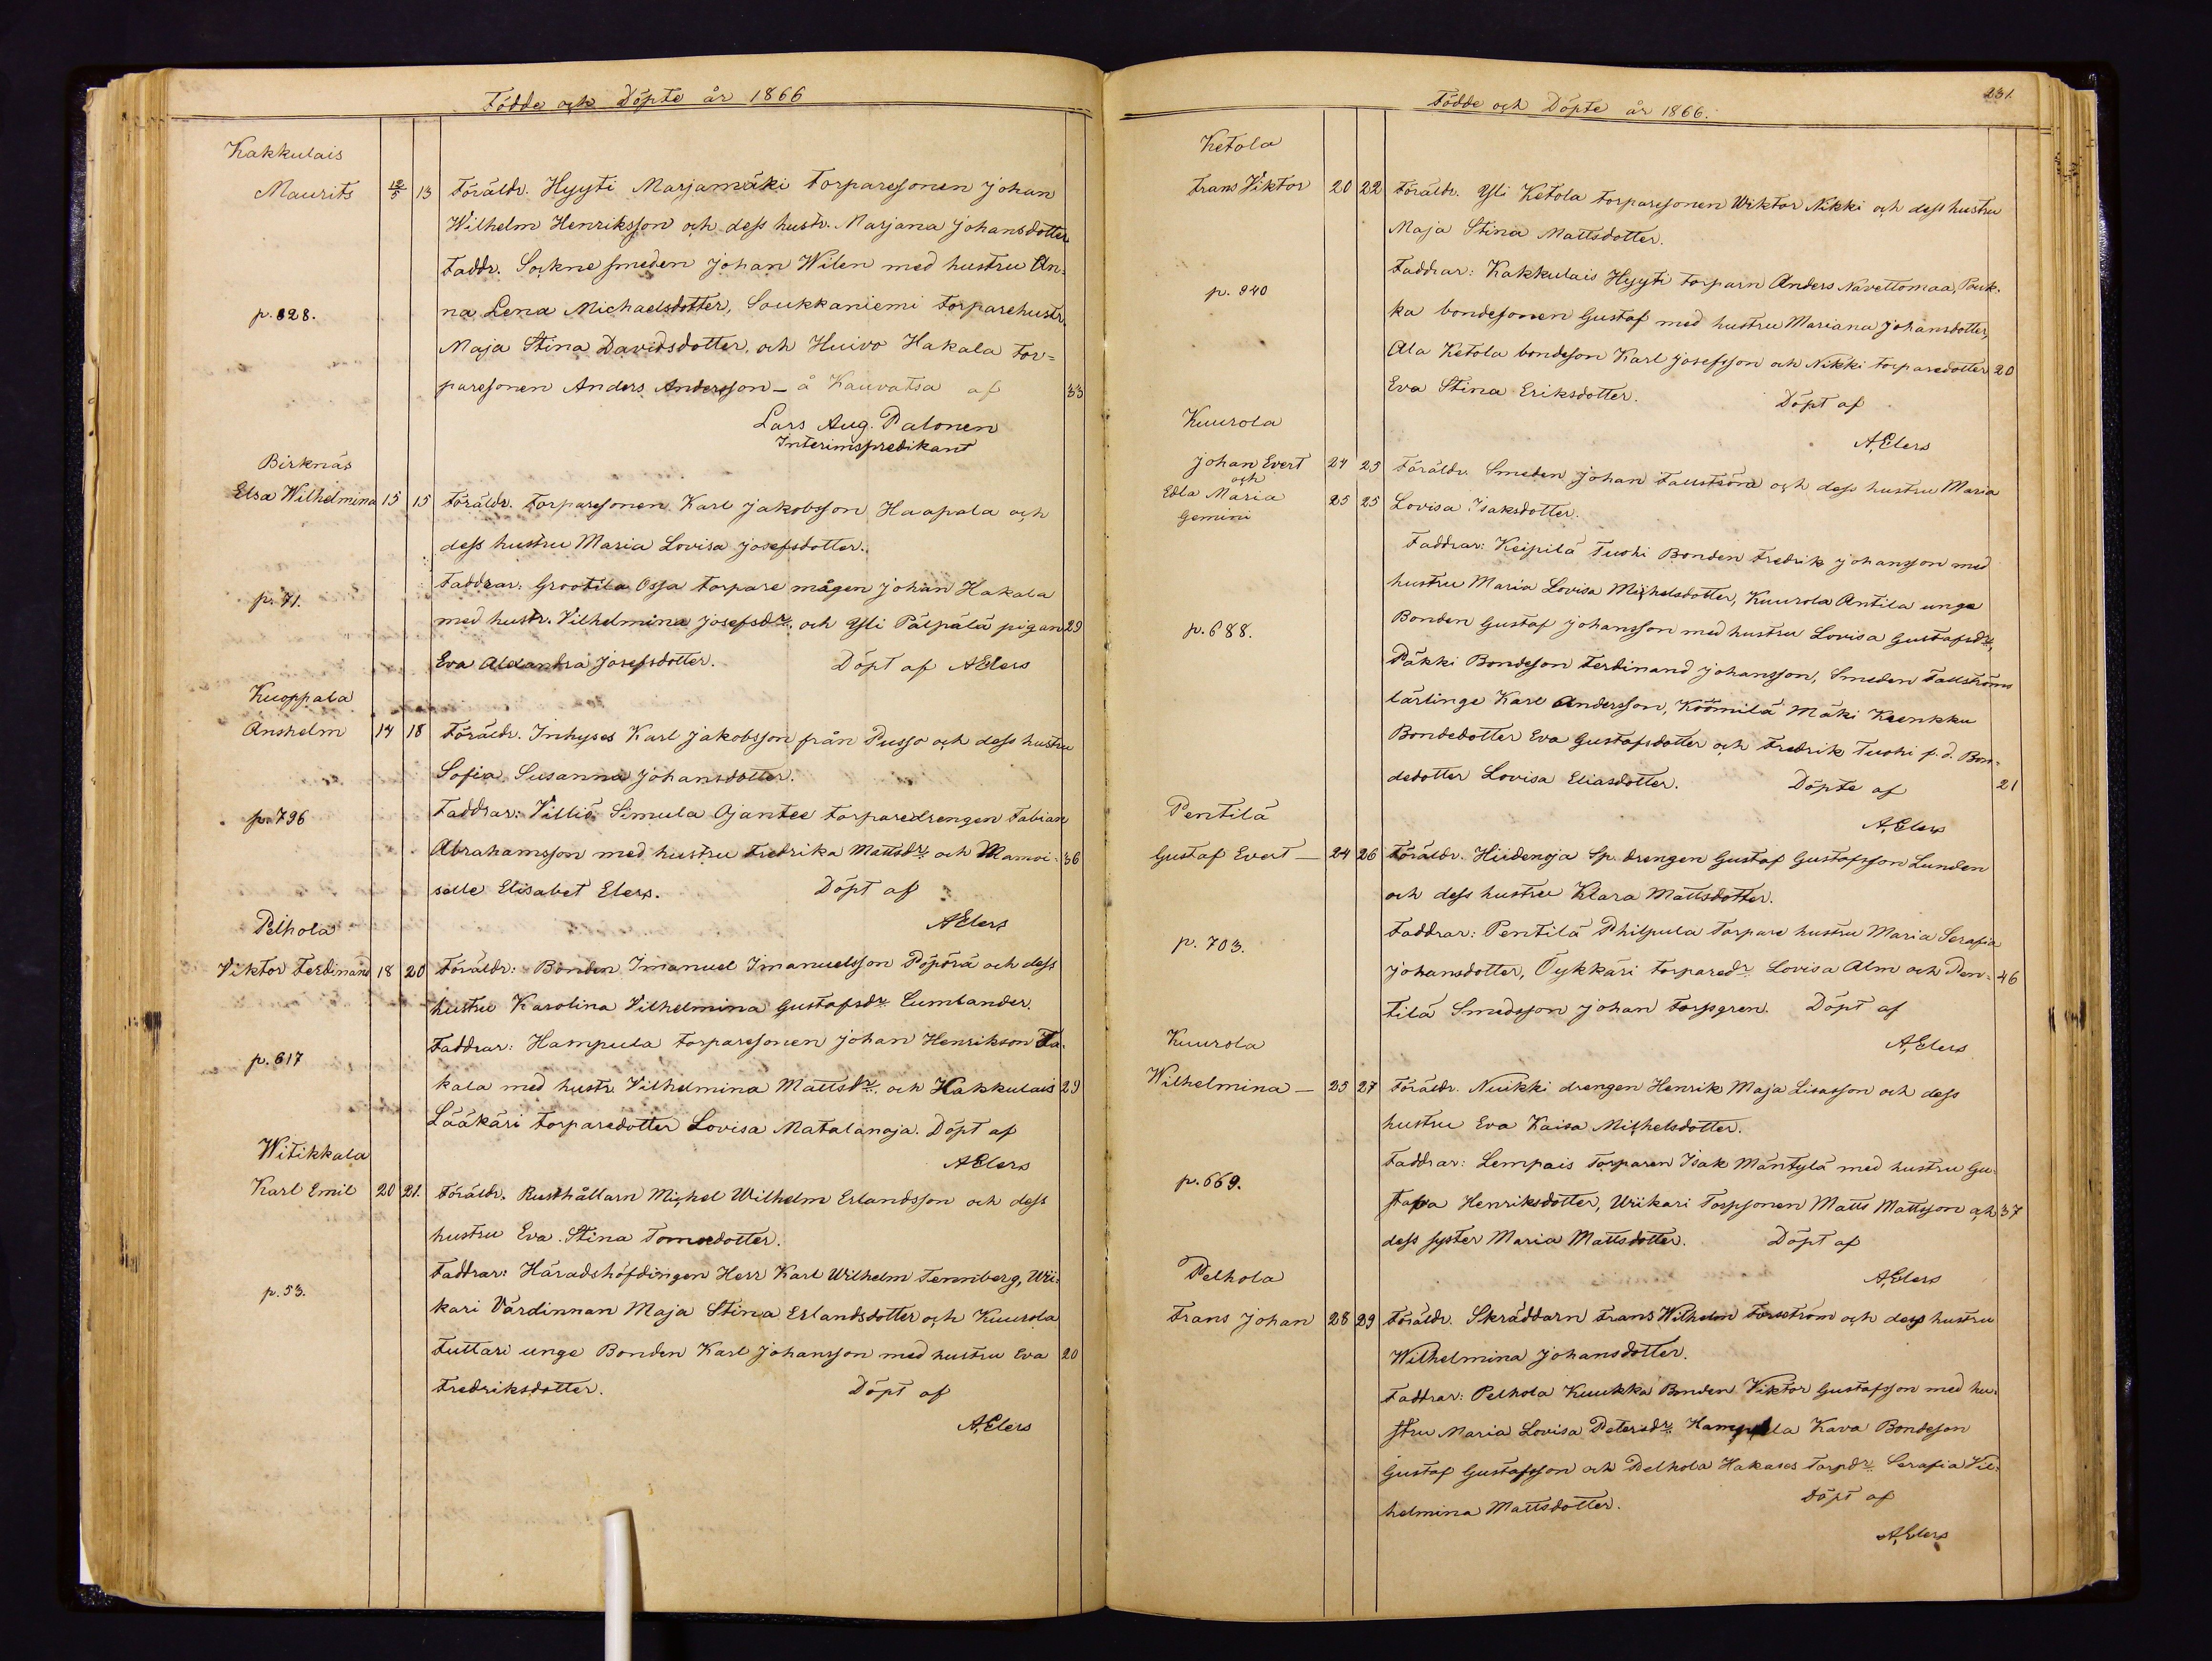 Födde och Döpte år 1866
Kakkulais
Maurits 12/5 13 Föräldr. Hyyti Marjamäki Torparesonen Johan
Wilhelm Henriksson och dess hustr. Marjana Johansdotter
Faddr. Sockne smeden Johan Wilen med hustru An-
p. 828. na Lena Michaelsdotter, Soukkaniemi Torparehustr.
Maja Stina Davidsdotter, och Huivo Hakala Tor=
paresonen Anders Andersson – å Kauvatsa af 33
Lars Aug. Palonen
Interimspredikant
Birknäs
Elsa Wilhelmina 15 15 Föräldr. Torparesonen Karl Jakobsson Haapala och
dess hustru Maria Lovisa Josefsdotter.
p. 71. Faddrar: Grootila Ossa torpare mågen Johan Hakala
med hustr. Vilhelmina Josefsdr. och Yli Pälpälä pigan 29
Eva Alexandra Josefsdotter. Döpt af AElers
Kuoppala
Anshelm 14 18 Föräldr. Inhyses Karl Jakobsson från Pusso och dess hustru
Sofia Susanna Johansdotter.
p. 796 Faddrar: Villiö Simula Ojantee torparedrengen Fabian
Abrahamsson med hustru Fredrika Mattsdr. och Mamoi- 36
selle Elisabet Elers. Döpt af
AElers
Pelhola
Viktor Ferdinand 18 20 Föräldr: Bonden Imanuel Imanuelsson Pöpörä och dess
hustru Karolina Vilhelmina Gustafsdr. Cumlander.
p. 617 Faddrar: Hampula torparesonen Johan Henrikson Ta-
kala med hustr. Vilhelmina Mattsdr. och Kakkulais 29
Lääkäri torparedotter Lovisa Matalanoja. Döpt af
AElers
Witikkala
Karl Emil 20 21. Föräldr. Rusthållarn Michel Wilhelm Erlandsson och dess
hustru Eva Stina Tomasdotter.
p. 53. Faddrar: Häradshöfdingen Herr Karl Wilhelm Tennberg, Wii-
kari Värdinnan Maja Stina Erlandsdotter och Kuurola
Futtari unge Bonden Karl Johansson med hustru Eva 20
Fredriksdotter. Döpt af
A,Elers
231.
Födde och Döpte år 1866.
Ketola
Frans Viktor 20 22 Föräldr. Yli Ketola torparesonen Wiktor Nikki och dess hustru
Maja Stina Mattsdotter.
p. 940 Faddrar: Kakkulais Hyyti torparn Anders Navettomaa, Pauk-
ka bondesonen Gustaf med hustru Mariana Johansdotter,
Ala Ketola bondeson Karl Josefsson och Nikki torparedotter 20
Eva Stina Eriksdotter. Döpt af
A,Elers
Kuurola
Johan Evert 24 25 Föräldr. Smeden Johan Fallström och dess hustru Maria
och
Edla Maria 25 25 Lovisa Isaksdotter.
Gemini
Faddrar: Keipilä Tuohi Bonden Fredrik Johansson med
hustru Maria Lovisa Michelsdotter, Kuurola Antila unge
p. 688. Bonden Gustaf Johansson med hustru Lovisa Gustafsdr,
Päkki Bondeson Ferdinand Johansson, Smeden Fallströms
lärlinge Karl Andersson, Köömilä Mäki Keenkku
Bondedotter Eva Gustafsdotter och Fredrik Tuohi f.d. Bon-
dedotter Lovisa Eliasdotter. Döpte af 21
A,Elers
Pentilä
Gustaf Evert – 24 26 Föräldr. Hiidenoja Sp. drengen Gustaf Gustafsson Lunden
och dess hustru Klara Mattsdotter.
p. 703. Faddrar: Pentilä Philpula Torpare hustru Maria Serafia
Johansdotter, Öykkäri torparedr. Lovisa Alm och Pen- 46
tilä Smedsson Johan Forsgren. Döpt af
A,Elers
Kuurola
Wilhelmina – 25 27 Föräldr. Nuikki drengen Henrik Maja Lisasson och dess
hustru Eva Kaisa Michelsdotter.
p. 669. Faddrar: Lempais Torparen Isak Mäntylä med hustru Gu-
stafva Henriksdotter, Wiikari Torpsonen Matts Mattsson och 37
dess syster Maria Mattsdotter. Döpt af
A,Elers
Pelhola
Frans Johan 28 29 Föräldr. Skräddarn Frans Wilhelm Forsström och dess hustru
Wilhelmina Johansdotter.
Faddrar: Pelhola Kuukka Bonden Viktor Gustafsson med hu-
stru Maria Lovisa Petersdr. Hampula Kava Bondeson
Gustaf Gustafsson och Pelhola Hakases Torpdr. Serafia Vil-
helmina Mattsdotter. Döpt af
A,Elers